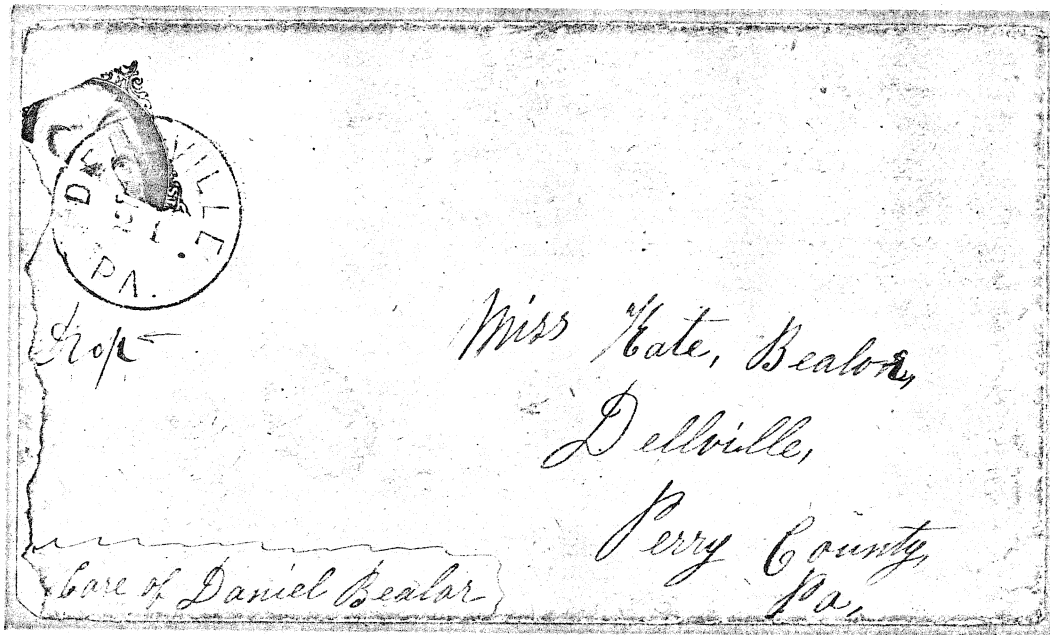 DE VILLE.
21
PA.
Drop
Miss Kate, Bealor,
Dellville,
Perry County,
Pa,
Care of Daniel Bealor